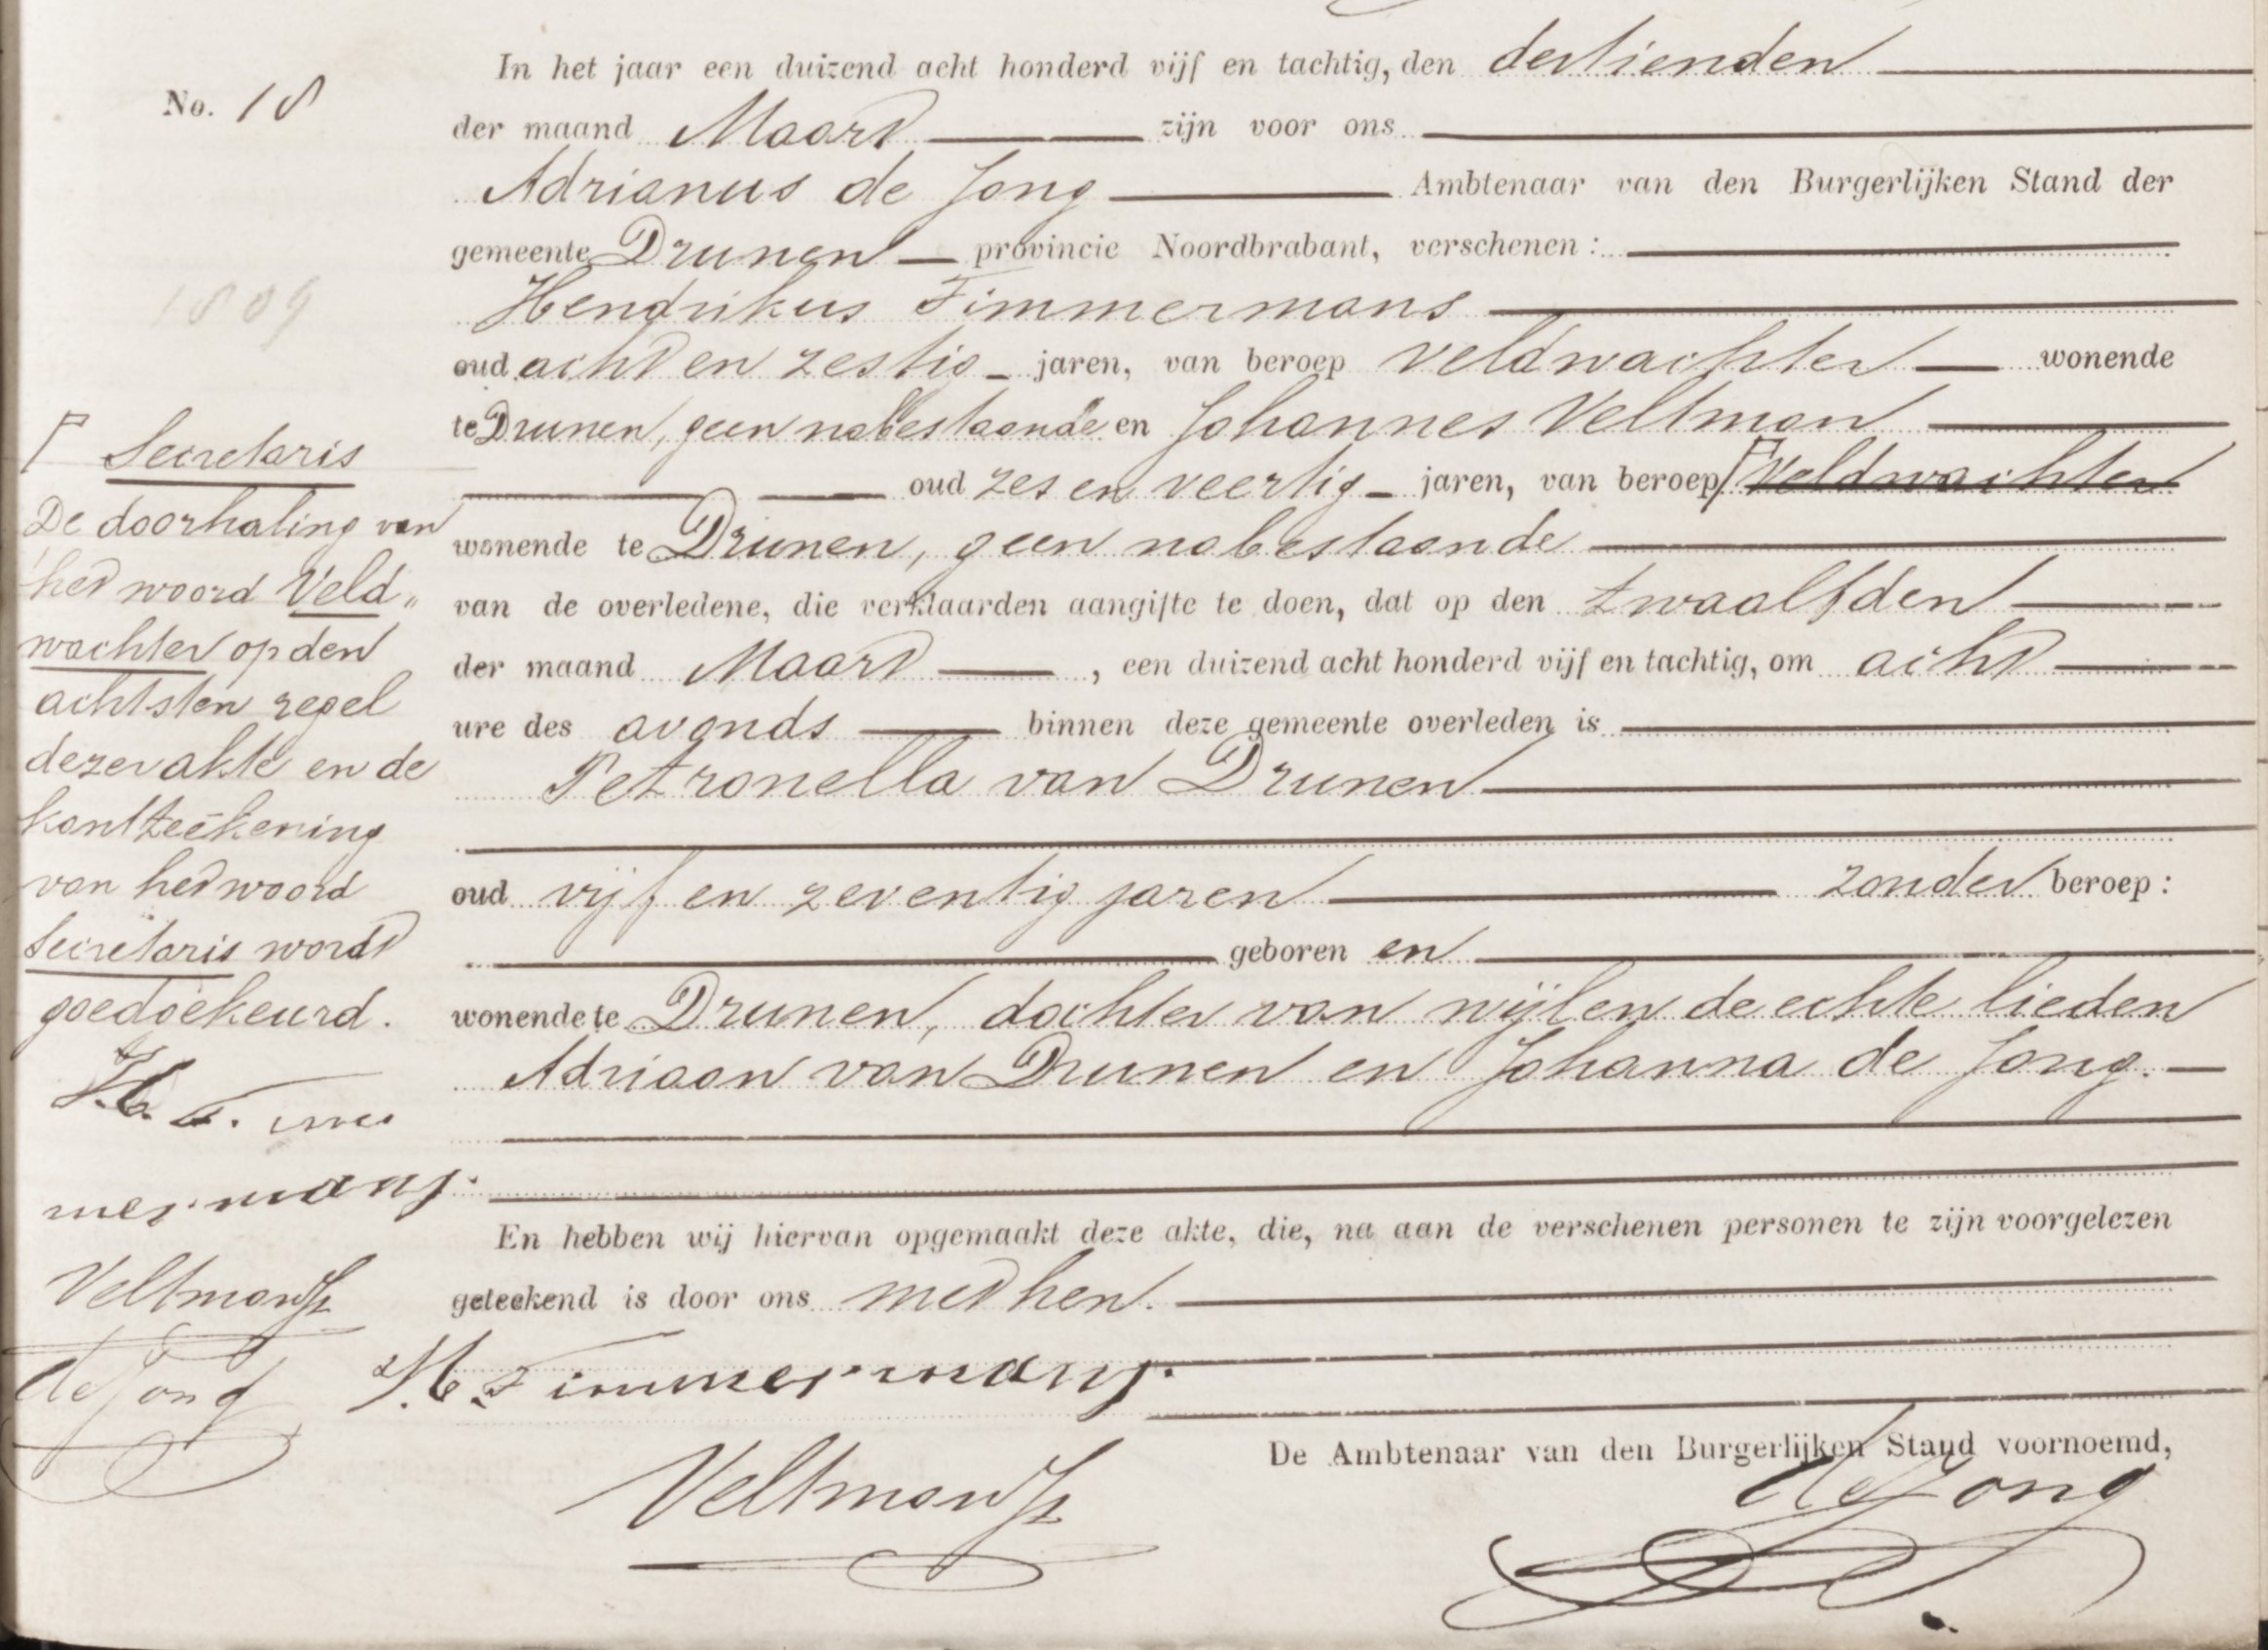 No. 18
1809
In het jaar een duizend acht honderd vijf en tachtig, den dertienden
der maand Maart zijn voor ons
Adrianus de Jong Ambtenaar van den Burgerlijken Stand der
gemeente Drunen provincie Noordbrabant, verschenen :
Hendrikus Timmermans
oud acht en zestig jaren, van beroep veldwachter wonende
te Drunen, geen nabestaande en Johannes Veltman
oud zes en veertig jaren, van beroep Veldwachter
wonende te Drunen, geen nabestaande
van de overledene, die verklaarden aangifte te doen, dat op den twaalfden
der maand Maart , een duizend acht honderd vijf en tachtig, om acht
ure des avonds binnen deze gemeente overleden is
Petronella van Drunen
oud vijf en zeventig jaren zonder beroep :
geboren en
wonende te Drunen, dochter van wijlen de echte lieden
Adriaan van Drunen en Johanna de Jong.
En hebben wij hiervan opgemaakt deze akte, die, na aan de verschenen personen te zijn voorgelezen
geteekend is door ons met hen.
H. Timmermans.
De Ambtenaar van den Burgerlijken Stand voornoemd,
Veltman
de Jong
Secretaris
De doorhaling van
het woord Veld„
wachter op den
achtsten regel
dezer akte en de
kantteekening
van het woord
Secretaris wordt
goedgekeurd.
H. T. im
mermans.
Veltman
de Jong